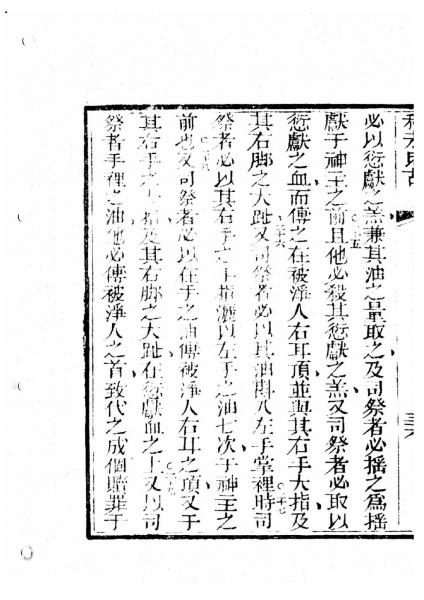 必以愆獻之羔兼其油之量取之及司祭者必搖之為搖
獻于神主之前且他必殺其愆獻之羔又司祭者必取以
愆獻之血而傅之在被淨人右耳頂並與其右手大指及
其右脚之大趾又司祭者必以其油斟入左手掌裡時司
祭者必以其右手之指灑以左手之油七次于神主之
前也又司祭者必以在手之油傅被淨人右耳之頂又于
其右手之大指及其右脚之大趾在愆獻血之上又以司
祭者手裡之油他必傅被淨人之首致代之成個贖罪于